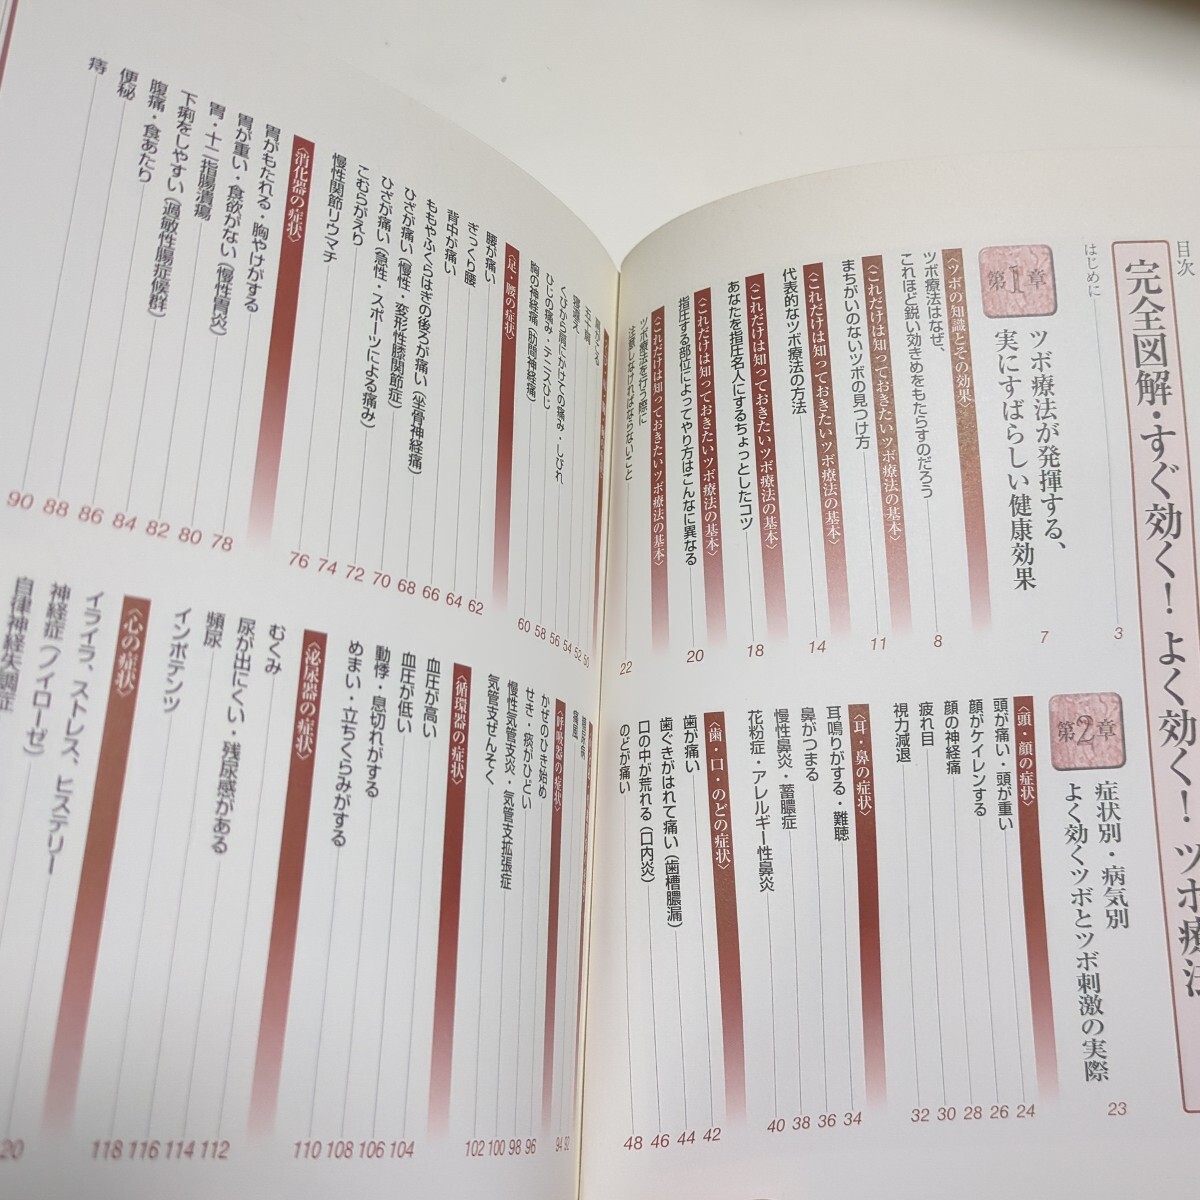 目次
完全図解・すぐ効く！よく効く！ツボ療法
はじめに
3
第1章
ツボ療法が発揮する、
実にすばらしい健康効果
7
〈ツボの知識とその効果〉
ツボ療法はなぜ、
これほど鋭い効きめをもたらすのだろう
8
〈これだけは知っておきたいツボ療法の基本〉
まちがいのないツボの見つけ方
11
〈これだけは知っておきたいツボ療法の基本〉
代表的なツボ療法の方法
14
〈これだけは知っておきたいツボ療法の基本〉
あなたを指圧名人にするちょっとしたコツ
18
〈これだけは知っておきたいツボ療法の基本〉
指圧する部位によってやり方はこんなに異なる
20
〈これだけは知っておきたいツボ療法の基本〉
ツボ療法を行う際に
注意しなければならないこと
22
第2章
症状別・病気別
よく効くツボとツボ刺激の実際
23
〈頭・顔の症状〉
頭が痛い・頭が重い
24
顔がケイレンする
26
顔の神経痛
28
疲れ目
30
視力減退
32
〈耳・鼻の症状〉
耳鳴りがする・難聴
34
鼻がつまる
36
慢性鼻炎・蓄膿症
38
花粉症・アレルギー性鼻炎
40
〈歯・口・のどの症状〉
歯が痛い
42
歯ぐきがはれて痛い（歯槽膿漏）
44
口の中が荒れる（口内炎）
46
のどが痛い
48
肩がこる
50
五十肩
52
寝違え
54
くびから肩にかけての痛み・しびれ
56
ひじの痛み・テニスひじ
58
胸の神経痛（肋間神経痛）
60
〈足・腰の症状〉
腰が痛い
62
ぎっくり腰
64
背中が痛い
66
ももやふくらはぎの後ろが痛い（坐骨神経痛）
68
ひざが痛い（慢性・変形性膝関節症）
70
ひざが痛い（急性・スポーツによる痛み）
72
こむらがえり
74
慢性関節リウマチ
76
〈消化器の症状〉
胃がもたれる・胸やけがする
78
胃が重い・食欲がない（慢性胃炎）
80
胃・十二指腸潰瘍
82
下痢をしやすい（過敏性腸症候群）
84
腹痛・食あたり
86
便秘
88
痔
90
糖尿病
92
痛風
94
〈呼吸器の症状〉
かぜのひき始め
96
せき・痰がひどい
98
慢性気管支炎・気管支拡張症
100
気管支ぜんそく
102
〈循環器の症状〉
血圧が高い
104
血圧が低い
106
動悸・息切れがする
108
めまい・立ちくらみがする
110
〈泌尿器の症状〉
むくみ
112
尿が出にくい・残尿感がある
114
頻尿
116
インポテンツ
118
〈心の症状〉
イライラ、ストレス、ヒステリー
20
神経症（ノイローゼ）
自律神経失調症